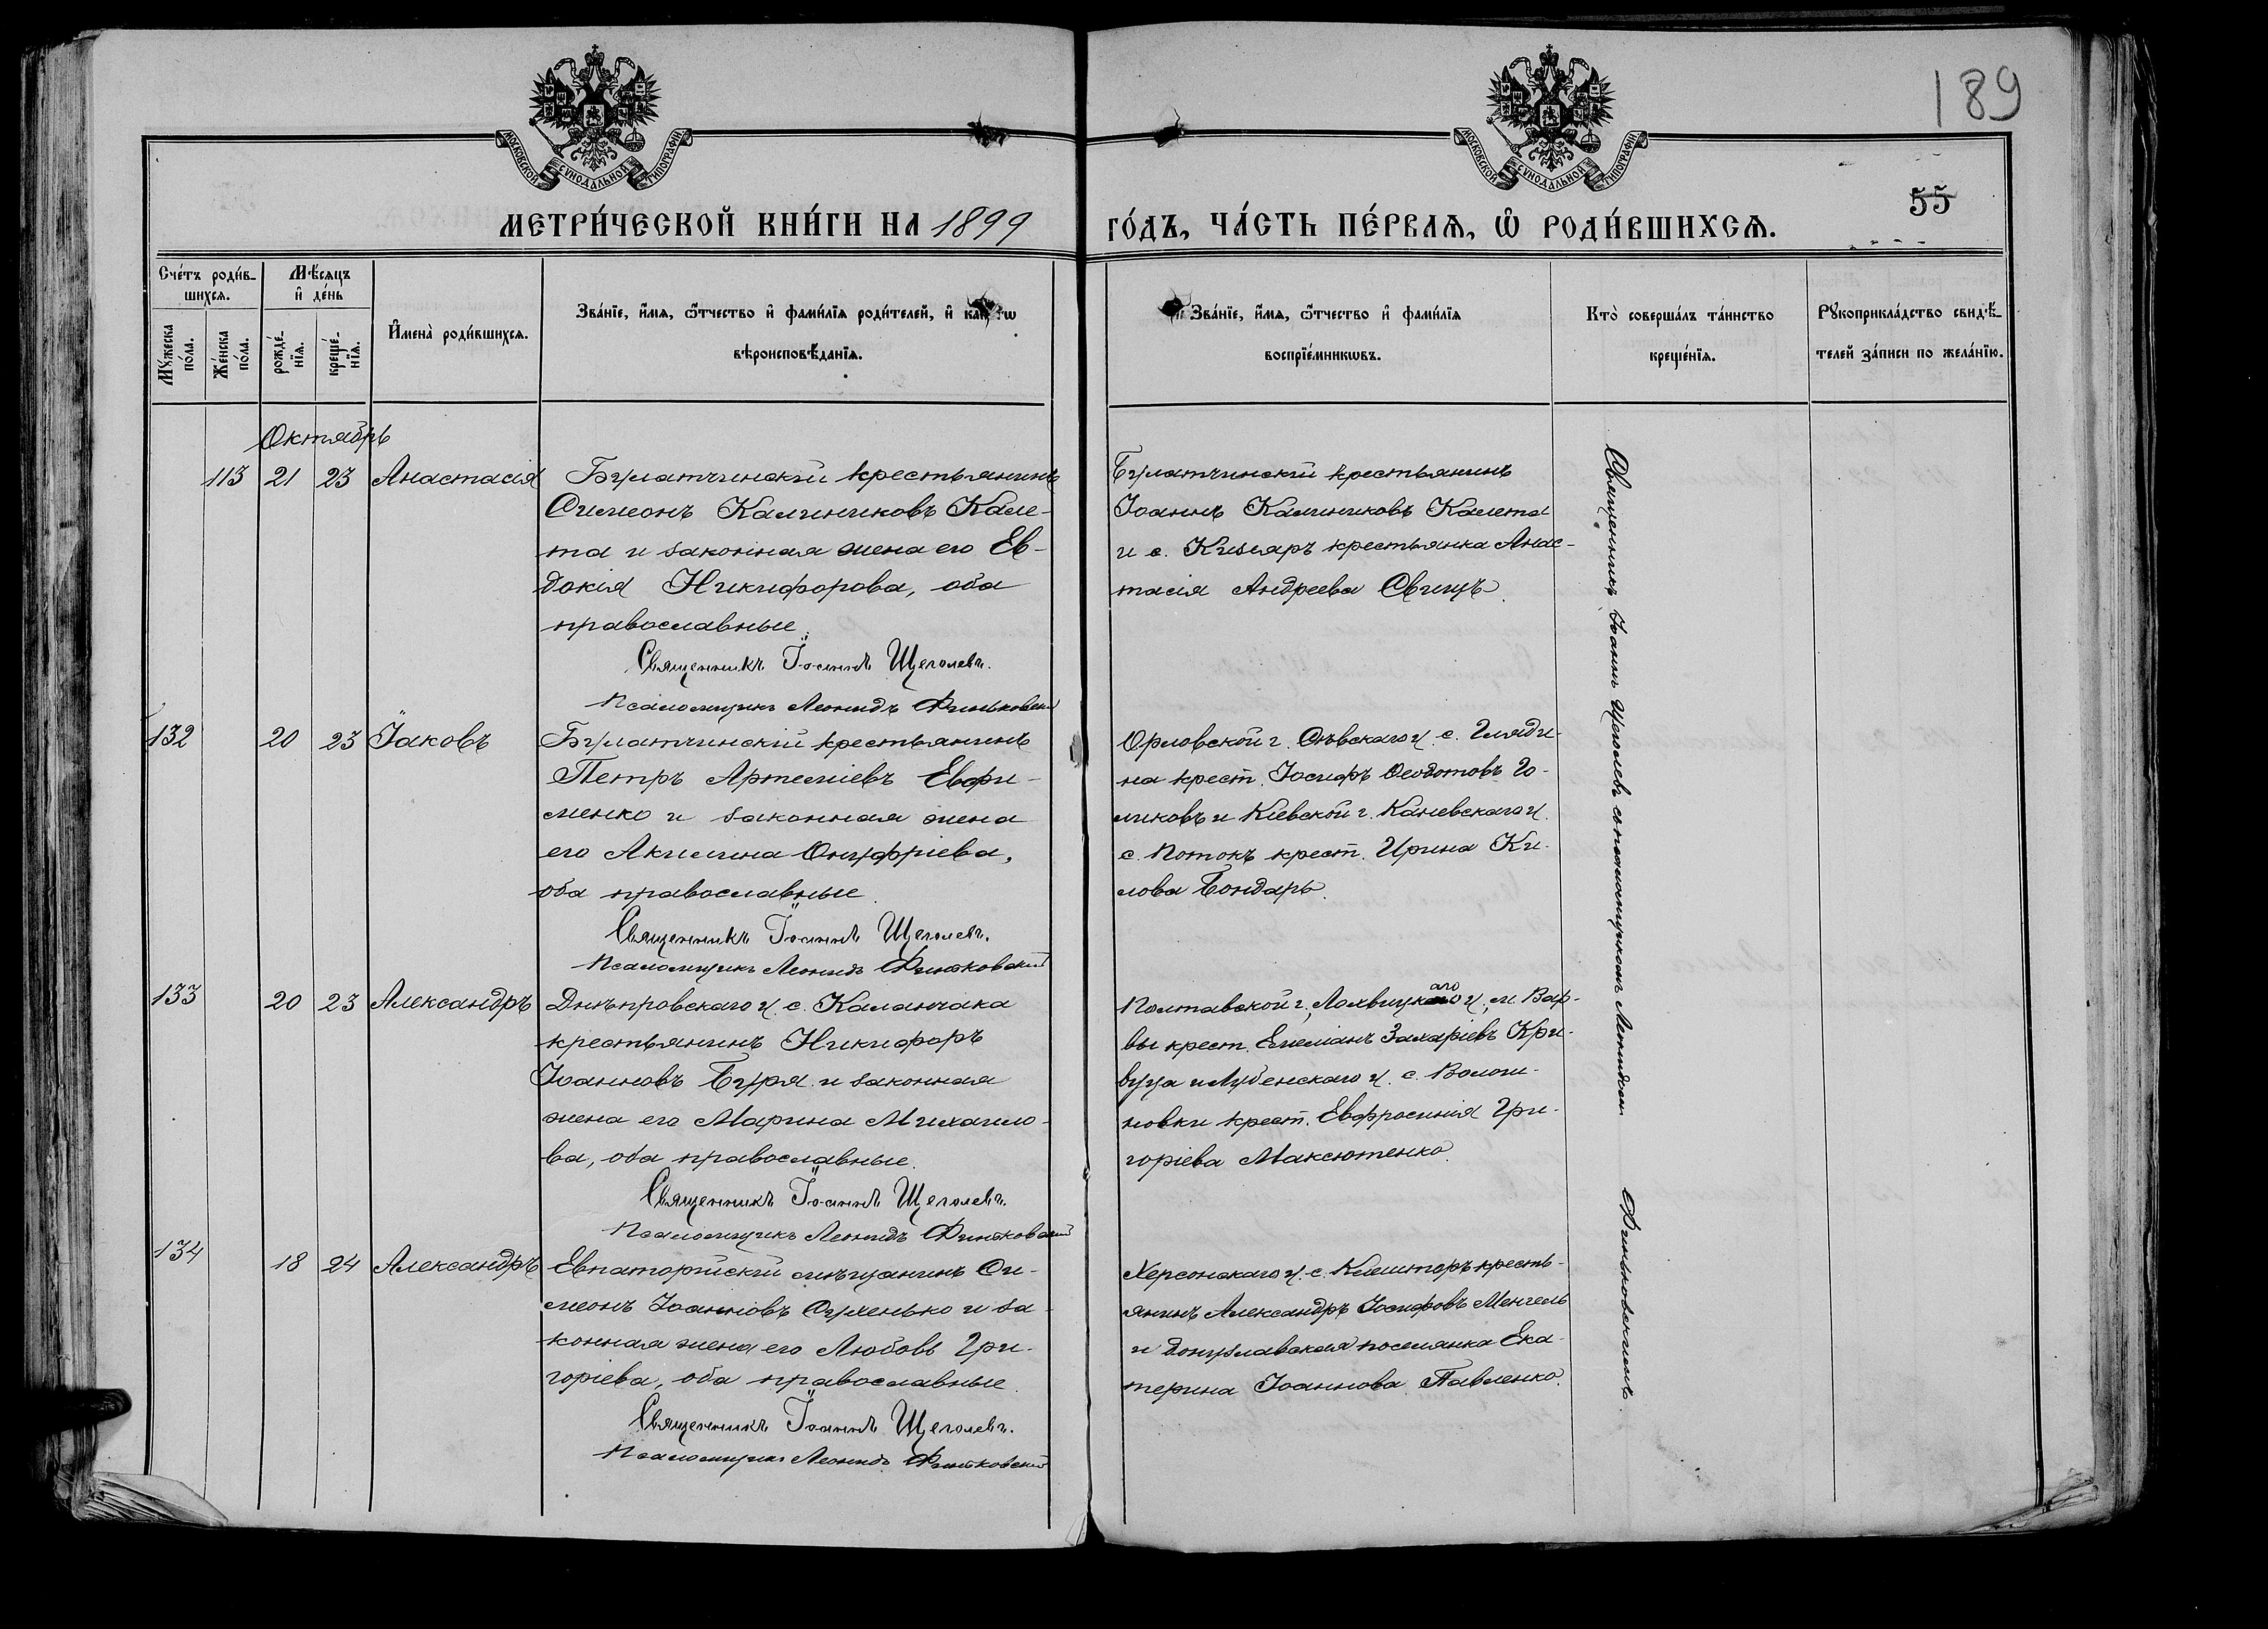 189
55
МОСКОВСКОЙ СѴНОДАЛЬНОЙ ТИПОГРАФІИ
МОСКОВСКОЙ СѴНОДАЛЬНОЙ ТИПОГРАФІИ
МЕТРИ́ЧЕСКОЙ КНИ́ГИ НА 1899 ГО́ДЪ, ЧА́СТЬ ПЕ́РВАѦ, Ѽ РОДИ́ВШИХСѦ.
Сче́тъ роди́в-
шихсѧ.
Мꙋжеска по́ла.
Же́нска по́ла.
Мѣ́сѧцъ
и҆ де́нь
рожде́-
нїѧ.
креще́-
нїѧ.
И҆мена̀ роди́вшихсѧ.
Зва́нїе, и҆́мѧ, ѻ҆́тчество и҆ фами́лїѧ роди́телей, и҆
вѣроисповѣ́данїѧ.
Зва́нїе, и҆́мѧ, ѻ҆́тчество и҆ фами́лїѧ
воспрїе́мникѡвъ.
Кто̀ соверша́лъ та́инство
креще́нїѧ.
Рꙋкоприкла́дство свидѣ́-
телей за́писи по жела́нїю.
Октябрь
113 21 23 Анастасія
Бурлатчинскій крестьянинъ
Симеонъ Калиниковъ Кале-
та и законная жена его Ев-
докія Никифорова, оба
православные.
Священникъ Іоаннъ Щеголевъ.
Псаломщикъ Леонидъ Финьковскій
Бурлатчинскій крестьянинъ
Іоаннъ Калиниковъ Калета
и с. Кизляръ крестьянка Анас-
тасія Андреева Свищъ.
132 20 23 Іаковъ
Бурлатчинскій крестьянинъ
Петръ Артеміевъ Евфи-
менко и законная жена
его Акилина Онуфріева,
оба православные.
Священникъ Іоаннъ Щеголевъ.
Псаломщикъ Леонидъ Финьковскій
Орловской г. Сѣвскаго у. с. Гляди-
на крест. Іосифъ Ѳеодотовъ Го-
ликовъ и Кіевской г. Каневскаго у.
с. Потокъ крест. Ирина Ки-
лова Бондарь.
133 20 23 Александръ
Днѣпровскаго у. с. Каланчака
крестьянинъ Никифоръ
Іоанновъ Буря и законная
жена его Марина Михаило-
ва, оба православные.
Священникъ Іоаннъ Щеголевъ.
Псаломщикъ Леонидъ Финьковскій
Полтавской г., Лохвицкаго у., м. Вар-
вы крест. Емеліанъ Захаріевъ Кри-
вуца и Лубенскаго у. с. Волочи-
новки крест. Евфросинія Гри-
горіева Максютенко.
134 18 24 Александръ
Евпаторійскій мѣщанинъ Си-
меонъ Іоанновъ Сухенько и за-
конная жена его Любовь Гри-
горіева, оба православные.
Священникъ Іоаннъ Щеголевъ.
Псаломщикъ Леонидъ Финьковскій
Херсонскаго у. с. Клешторъ кресть-
янинъ Александръ Іосифовъ Менгель
и Донузлавская поселянка Ека-
терина Іоаннова Павленко.
Священникъ Іоаннъ Щеголевъ съ псаломщикомъ Леонидомъ Финьковскимъ.